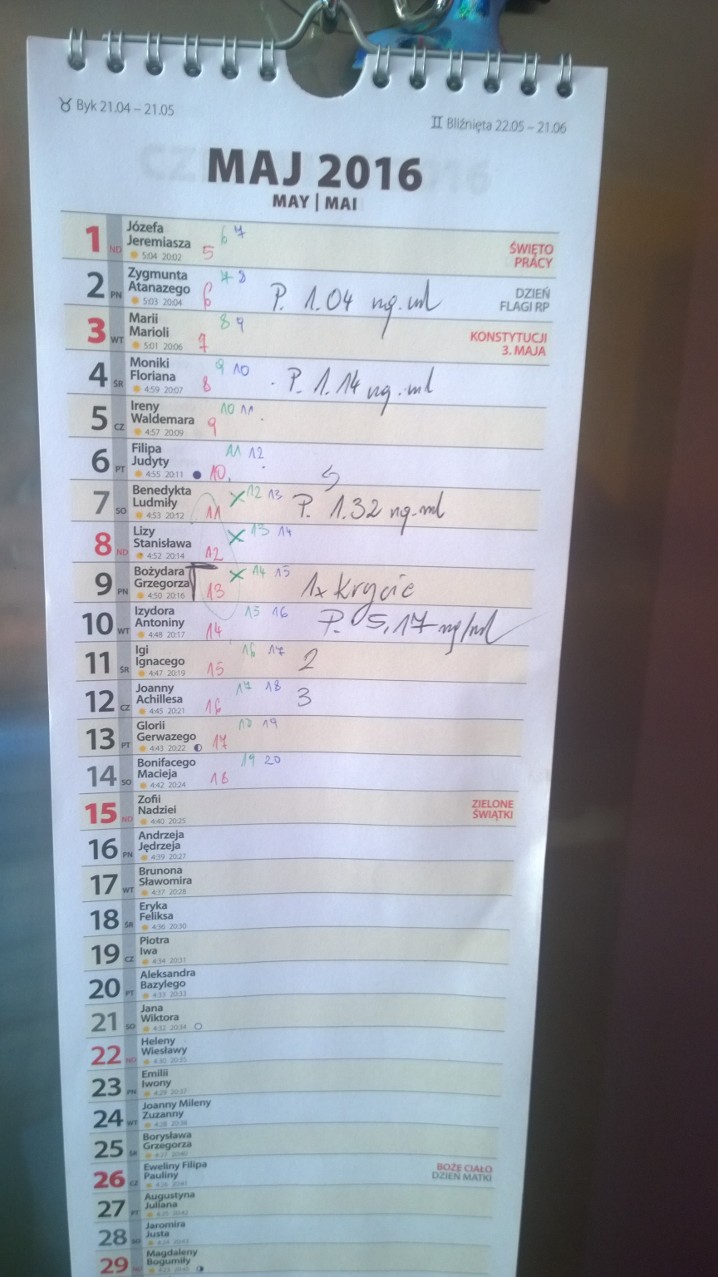 ♉ Byk 21.04 – 21.05
♊ Bliźnięta 22.05 – 21.06
MAJ 2016
MAY | MAI
1 ND Józefa Jeremiasza 5:04 20:02 5 6 7 ŚWIĘTO PRACY
2 PN Zygmunta Atanazego 5:03 20:04 6 7 8 P. 1.04 ng.ml DZIEŃ FLAGI RP
3 WT Marii Marioli 5:01 20:06 7 8 9 KONSTYTUCJI 3. MAJA
4 ŚR Moniki Floriana 4:59 20:07 8 9 10 P. 1.14 ng.ml
5 CZ Ireny Waldemara 4:57 20:09 9 10 11
6 PT Filipa Judyty 4:55 20:11 10 11 12
7 SO Benedykta Ludmiły 4:53 20:12 11 X 12 13 P. 1.32 ng.ml
8 ND Lizy Stanisława 4:52 20:14 12 X 13 14
9 PN Bożydara Grzegorza 4:50 20:16 13 X 14 15 1x krycie
10 WT Izydora Antoniny 4:48 20:17 14 15 16 P. 5,17 ng/ml
11 ŚR Igi Ignacego 4:47 20:19 15 16 17 2
12 CZ Joanny Achillesa 4:45 20:21 16 17 18 3
13 PT Glorii Gerwazego 4:43 20:22 17 18 19
14 SO Bonifacego Macieja 4:42 20:24 18 19 20
15 ND Zofii Nadziei 4:40 20:25 ZIELONE ŚWIĄTKI
16 PN Andrzeja Jędrzeja 4:39 20:27
17 WT Brunona Sławomira 4:37 20:28
18 ŚR Eryka Feliksa 4:36 20:30
19 CZ Piotra Iwa 4:34 20:31
20 PT Aleksandra Bazylego 4:33 20:33
21 SO Jana Wiktora 4:32 20:34
22 ND Heleny Wiesławy
23 PN Emilii Iwony
24 WT Joanny Mileny Zuzanny
25 ŚR Borysława Grzegorza
26 CZ Eweliny Filipa Pauliny BOŻE CIAŁO DZIEŃ MATKI
27 PT Augustyna Juliana
28 SO Jaromira Justa
29 ND Magdaleny Bogumiły